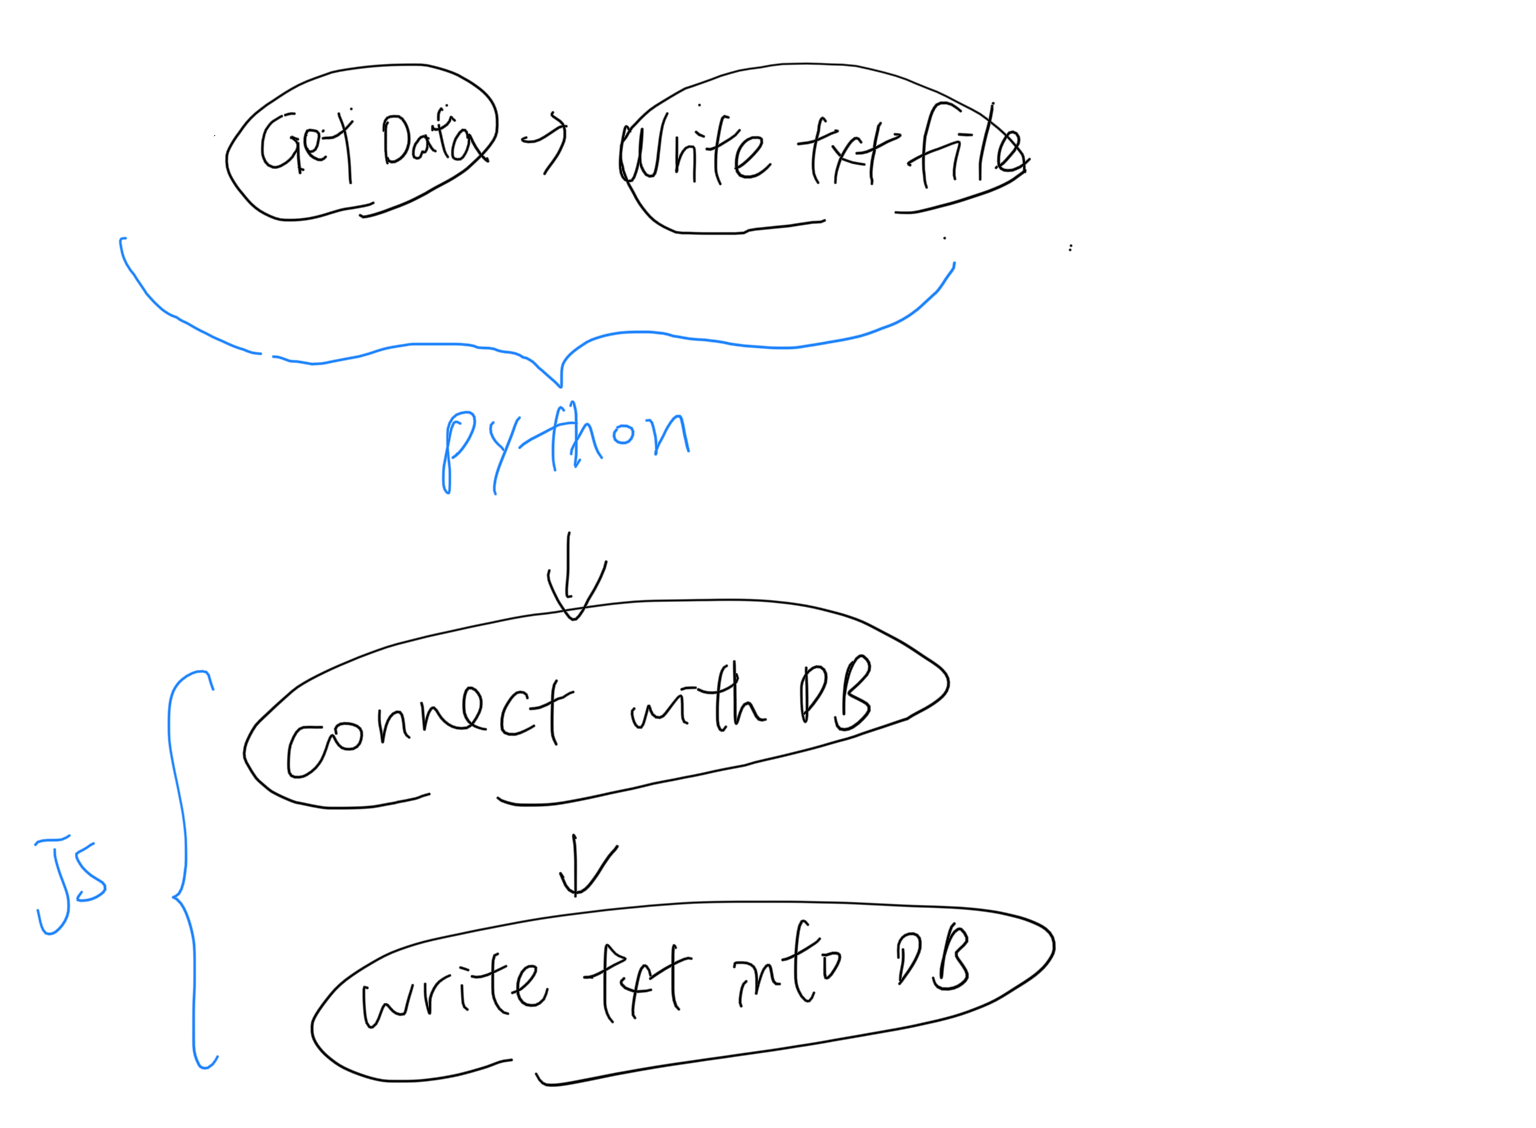 Get Data → Write txt file
python
connect with DB
JS
write txt into DB